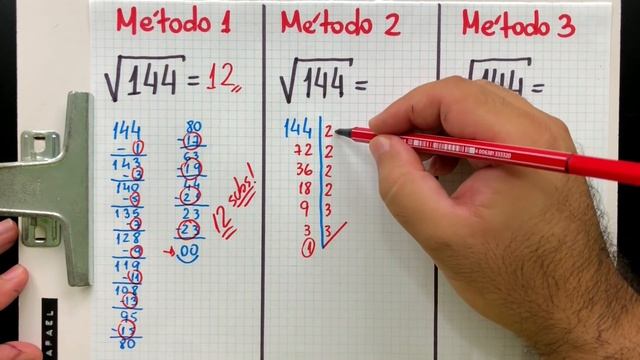 Método 1
√144 = 12
144
- 1
143
- 3
140
- 5
135
- 7
128
- 9
119
- 11
108
- 13
95
- 15
80
80
- 17
63
- 19
44
- 21
23
- 23
00
12 subs!
Método 2
√144 =
144 | 2
72 | 2
36 | 2
18 | 2
9 | 3
3 | 3
1
Método 3
√144 =
AFAEL
4 006381 333320